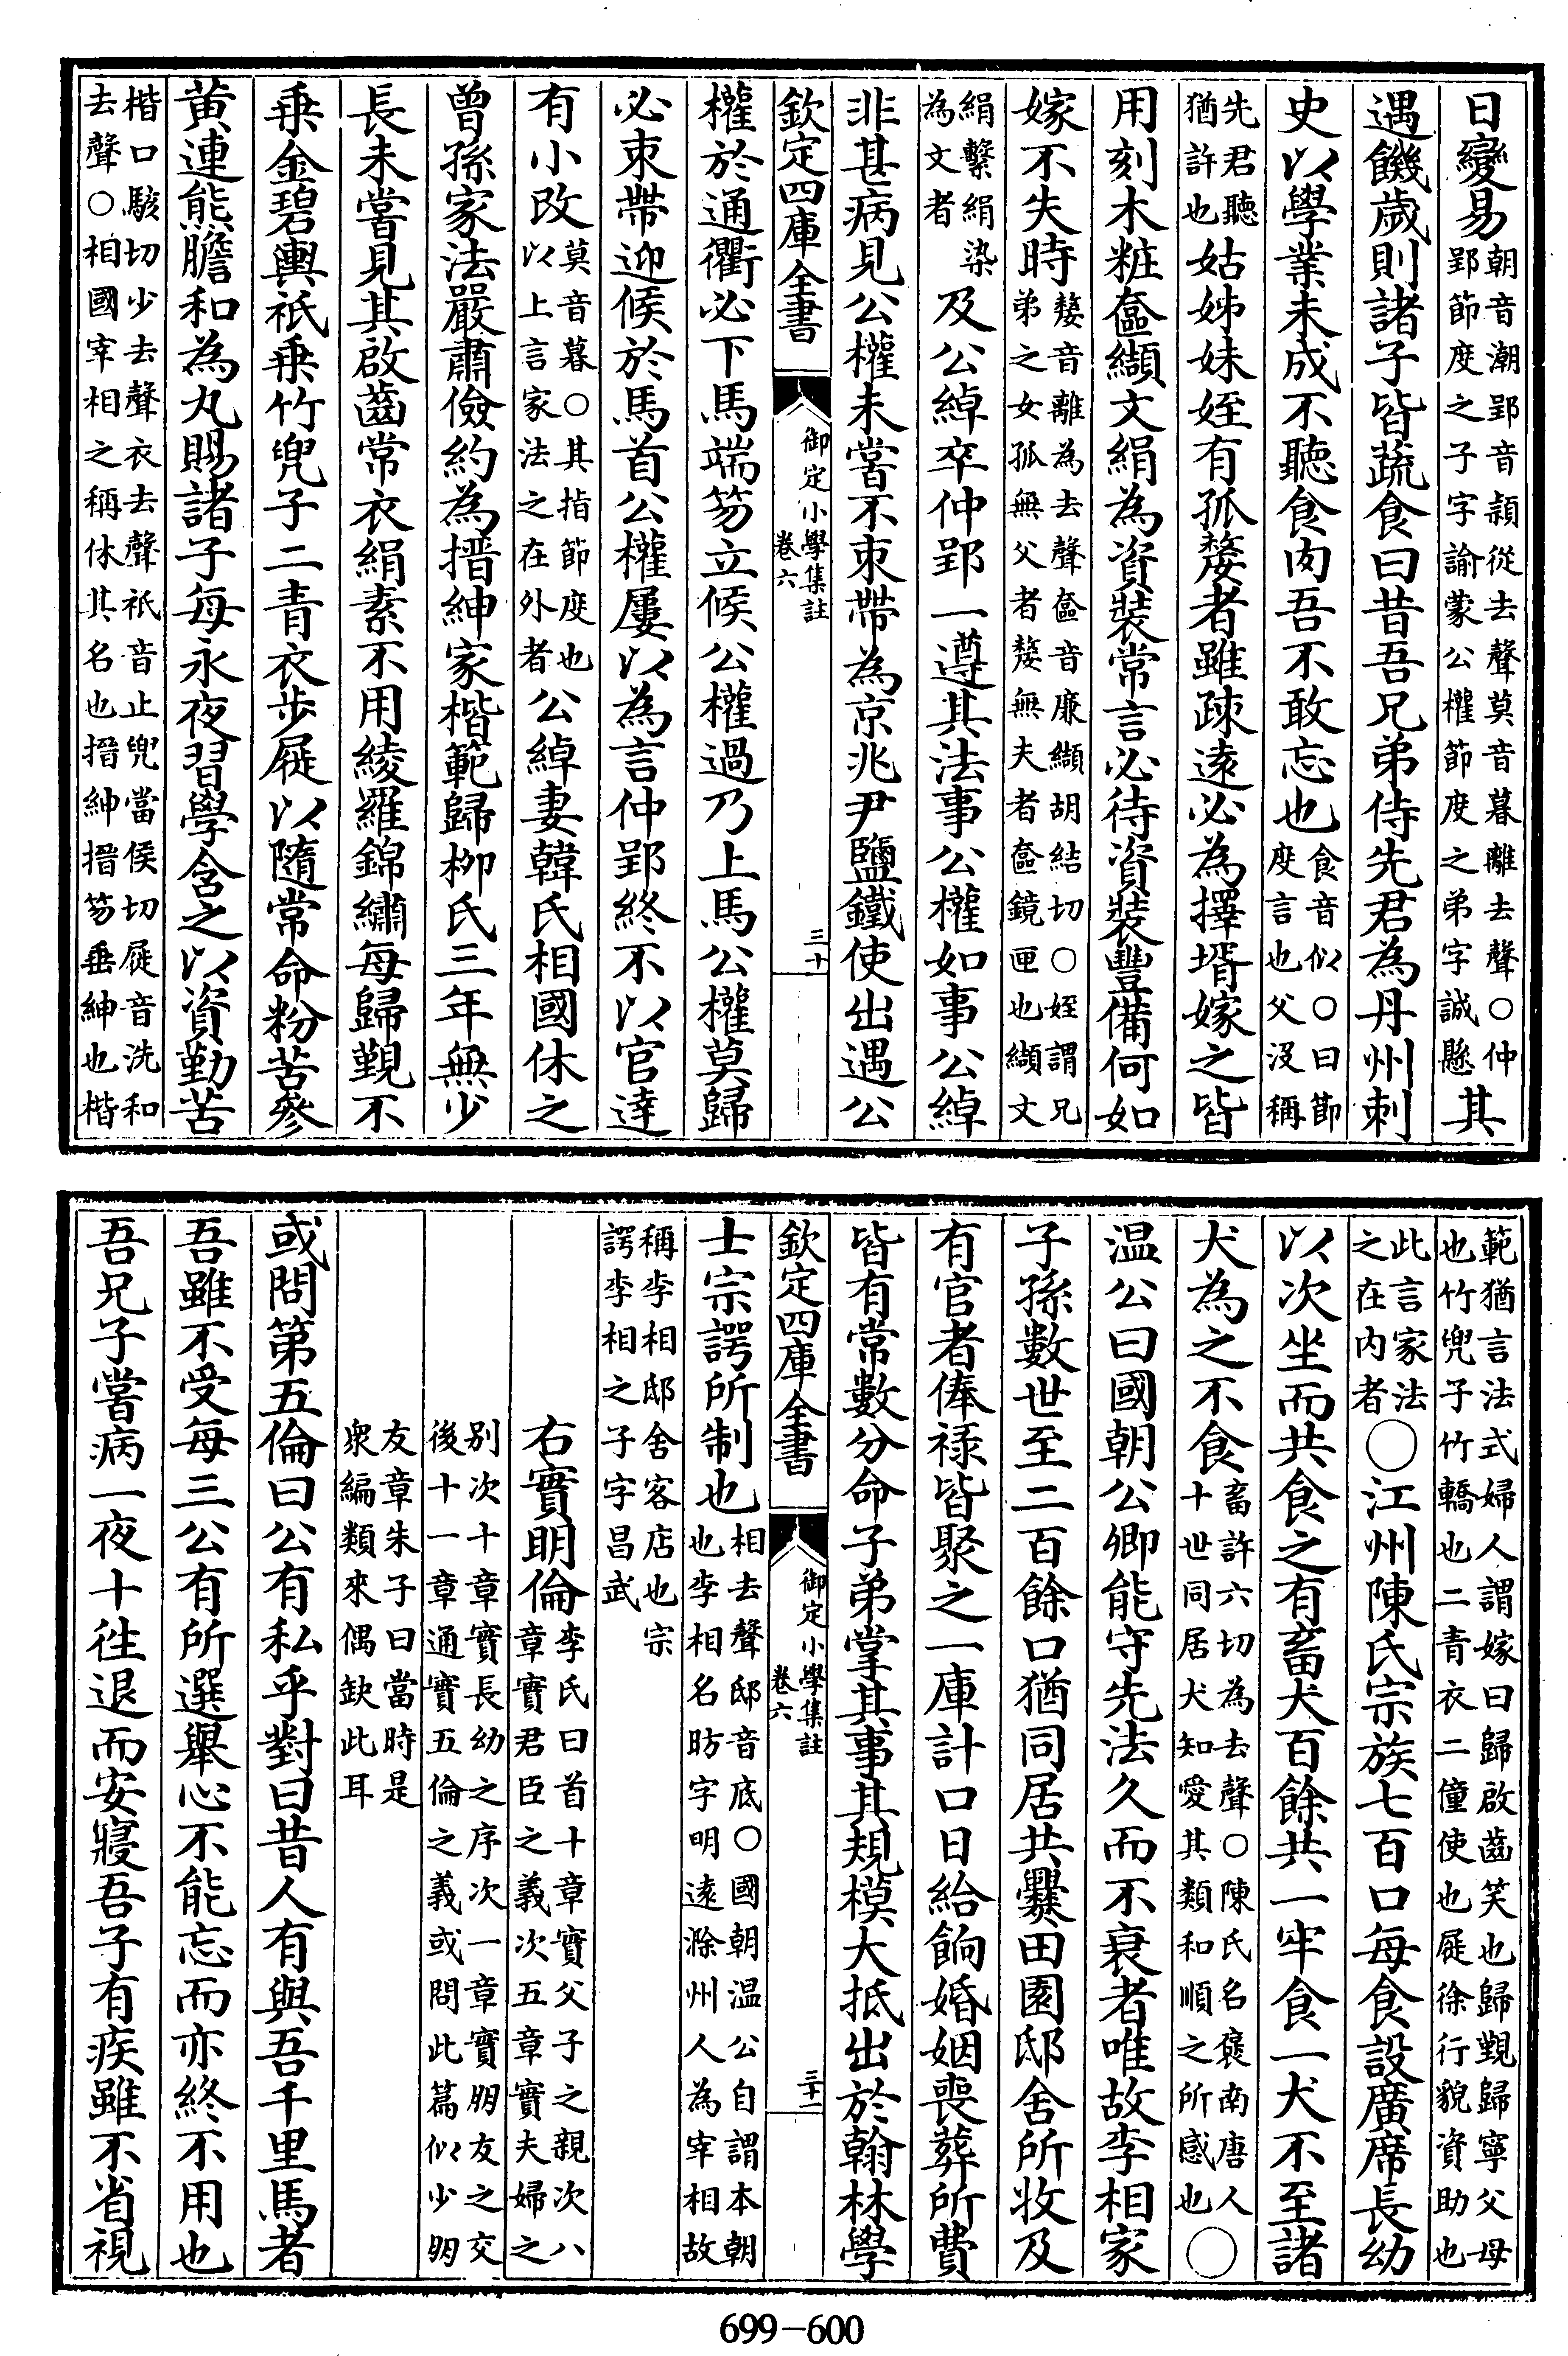 日變易朝音潮郢音頴從去聲莫音暮離去聲○仲郢節度之子字諭蒙公權節度之弟字誠懸其
遇饑歲則諸子皆蔬食曰昔吾兄弟侍先君為丹州刺
史以學業未成不聽食肉吾不敢忘也食音似○曰節度言也父沒稱
先君聽猶許也姑姊妹姪有孤嫠者雖疎逺必為擇壻嫁之皆
用刻木粧奩纈文絹為資裝常言必待資裝豐備何如
嫁不失時嫠音離為去聲奩音廉纈胡結切○姪謂兄弟之女孤無父者嫠無夫者奩鏡匣也纈文
絹繫絹染為文者及公綽卒仲郢一遵其法事公權如事公綽
非甚病見公權未嘗不束帶為京兆尹鹽鐵使出遇公
欽定四庫全書
御定小學集註
卷六
三十
權於通衢必下馬端笏立候公權過乃上馬公權莫歸
必束帶迎候於馬首公權屢以為言仲郢終不以官達
有小改莫音暮○其指節度也以上言家法之在外者公綽妻韓氏相國休之
曾孫家法嚴肅儉約為搢紳家楷範歸柳氏三年無少
長未嘗見其啟齒常衣絹素不用綾羅錦繡每歸覲不
乗金碧輿祇乗竹兜子二青衣步屣以隨常命粉苦參
黄連熊膽和為丸賜諸子每永夜習學含之以資勤苦
楷口駭切少去聲衣去聲祇音止兜當侯切屣音洗和去聲○相國宰相之稱休其名也搢紳搢笏垂紳也楷
範猶言法式婦人謂嫁曰歸啟齒笑也歸覲歸寧父母也竹兜子竹轎也二青衣二僮使也屣徐行貌資助也
此言家法之在内者○江州陳氏宗族七百口每食設廣席長幼
以次坐而共食之有畜犬百餘共一牢食一犬不至諸
犬為之不食畜許六切為去聲○陳氏名襃南唐人十世同居犬知愛其類和順之所感也○
温公曰國朝公卿能守先法久而不衰者唯故李相家
子孫數世至二百餘口猶同居共爨田園邸舍所收及
有官者俸禄皆聚之一庫計口日給餉婚姻喪葬所費
皆有常數分命子弟掌其事其規模大抵出於翰林學
欽定四庫全書
御定小學集註
卷六
三十一
士宗諤所制也相去聲邸音底○國朝温公自謂本朝也李相名昉字明逺滁州人為宰相故
稱李相邸舍客店也宗諤李相之子字昌武
右實明倫李氏曰首十章實父子之親次八章實君臣之義次五章實夫婦之
別次十章實長幼之序次一章實朋友之交後十一章通實五倫之義或問此篇似少朋
友章朱子曰當時是衆編類來偶缺此耳
或問第五倫曰公有私乎對曰昔人有與吾千里馬者
吾雖不受每三公有所選舉心不能忘而亦終不用也
吾兄子嘗病一夜十往退而安寢吾子有疾雖不省視
699-600